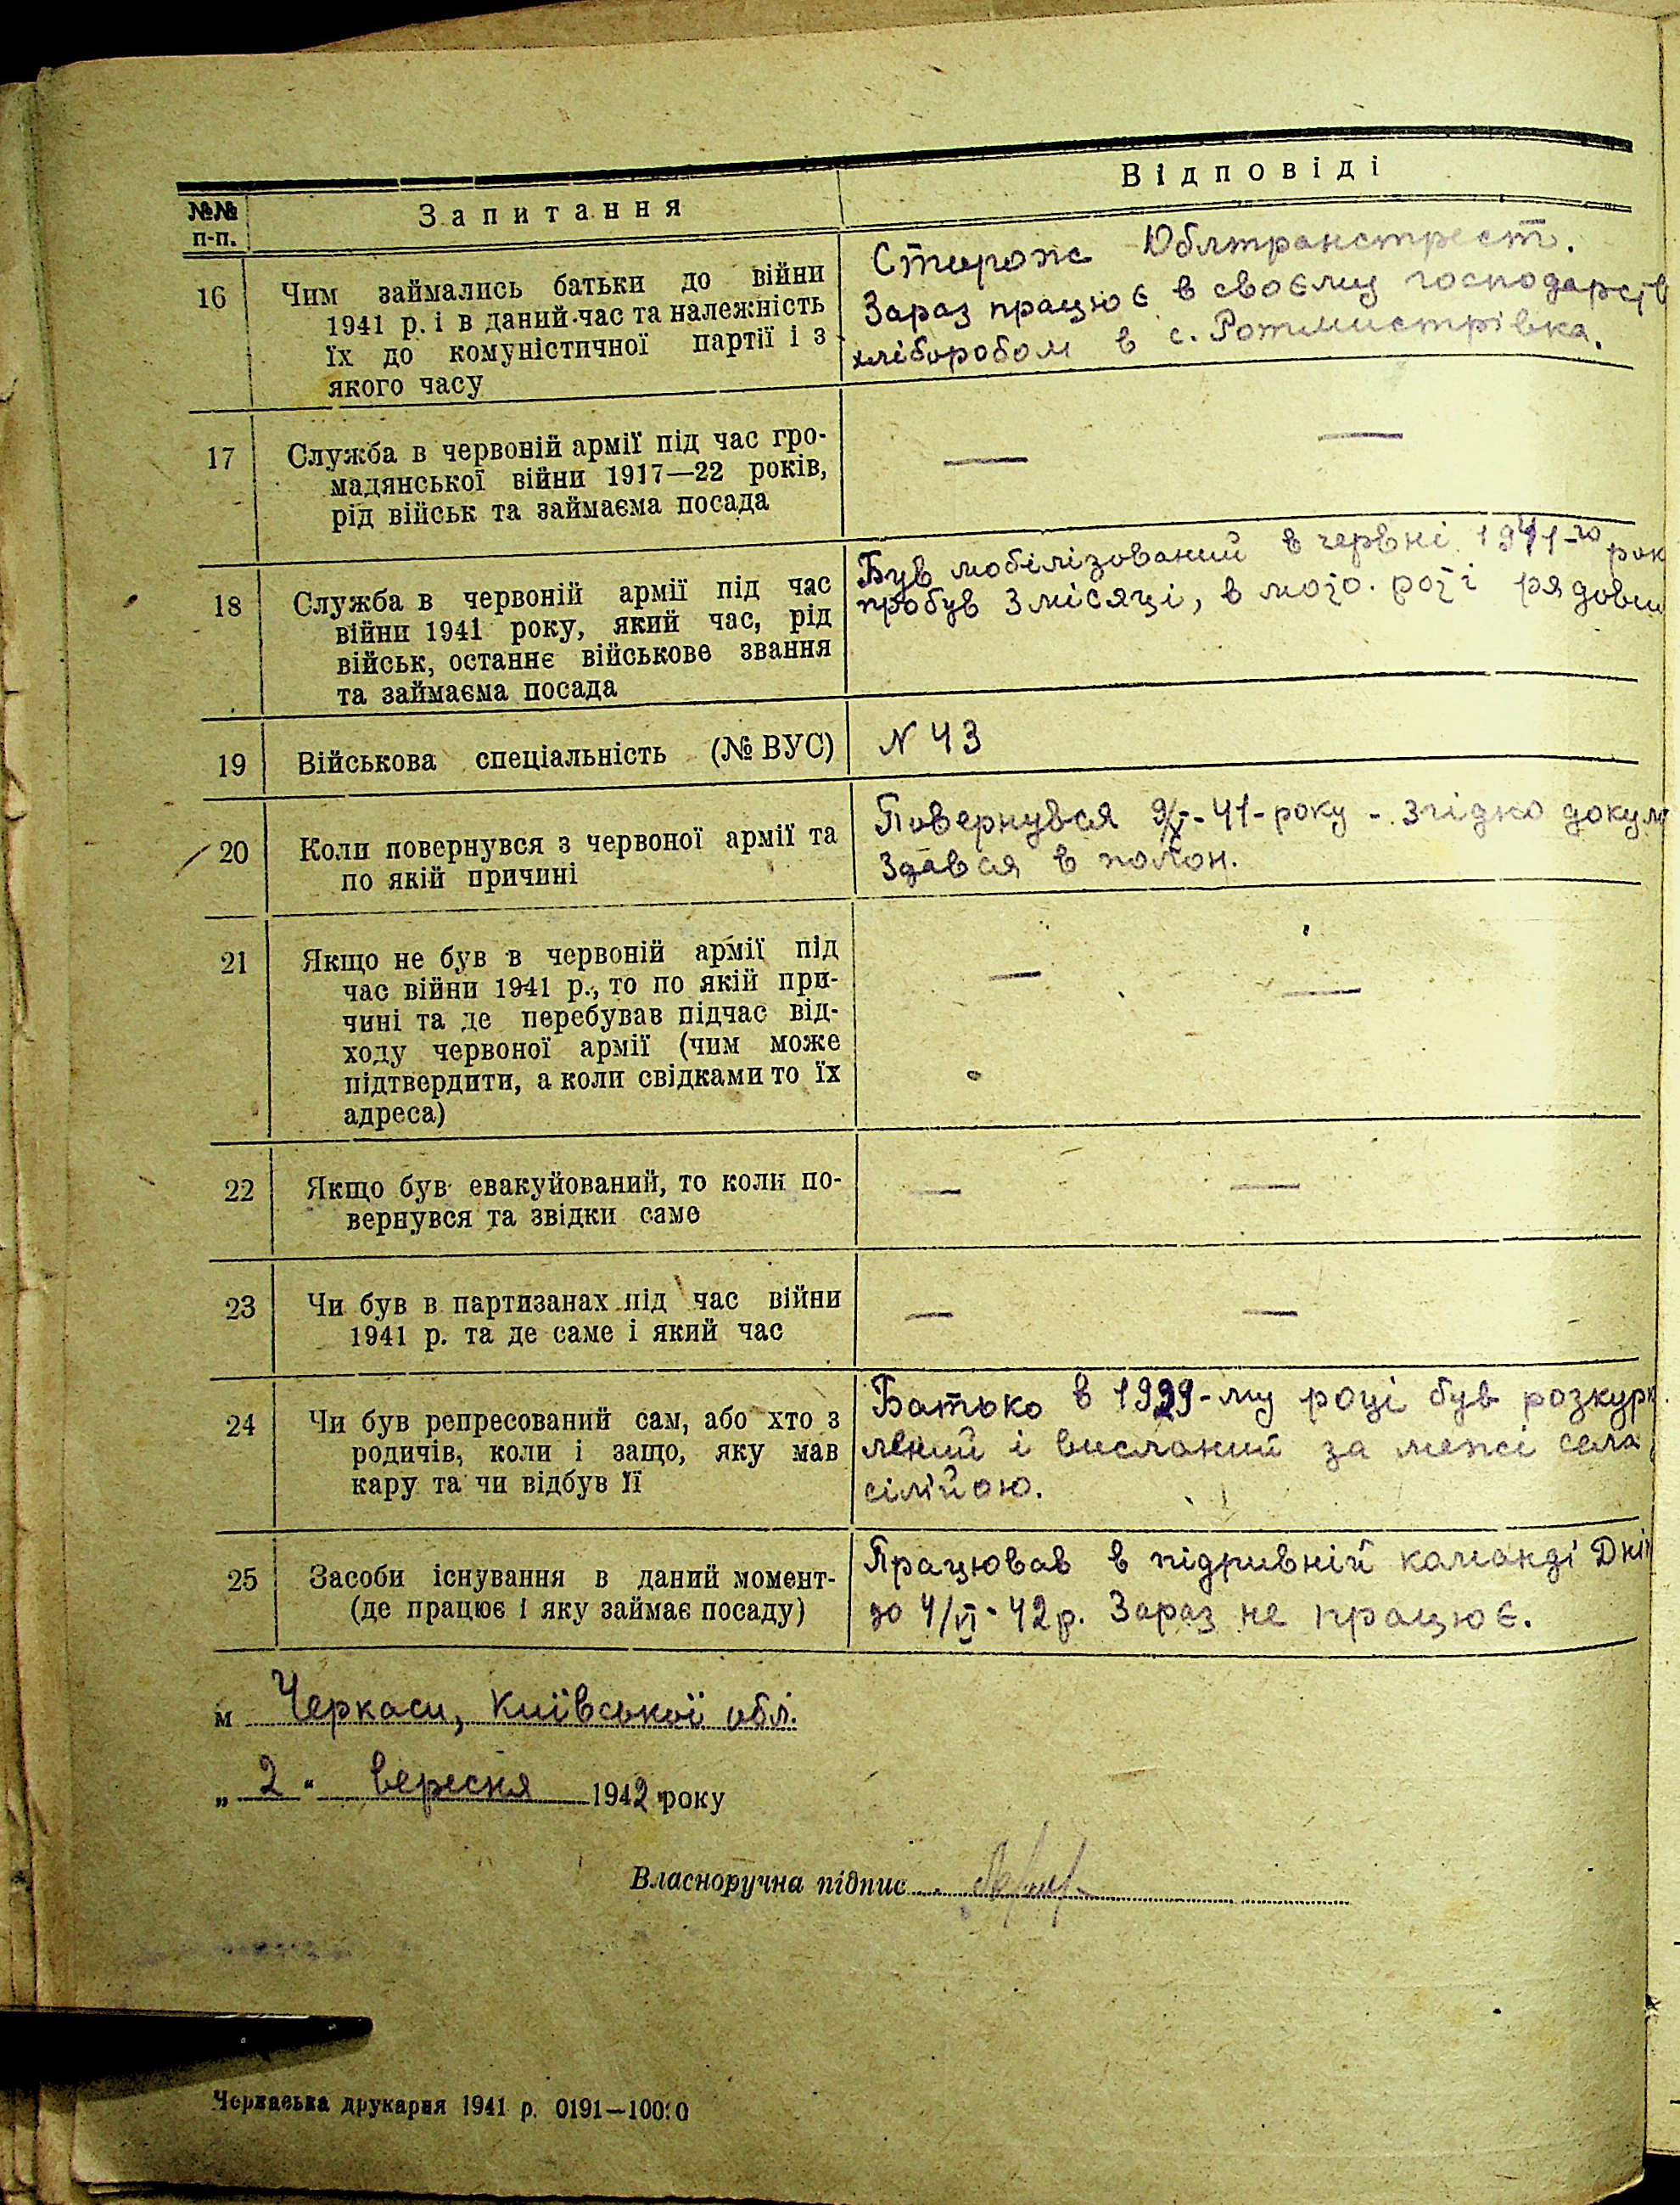 №№ п-п.
Запитання
Відповіді
16
Чим займались батьки до війни
1941 р. і в даний час та належність
їх до комуністичної партії і з
якого часу
Сторож Облтранстрест.
Зараз працює в своєму господарств
хліборобом в с. Ротмистрівка.
17
Служба в червоній армії під час гро-
мадянської війни 1917—22 років,
рід військ та займаєма посада
— —
18
Служба в червоній армії під час
війни 1941 року, який час, рід
військ, останнє військове звання
та займаєма посада
Був мобілізований в червні 1941-го рок
пробув 3 місяці, в роті рядовим
19
Військова спеціальність (№ ВУС)
N 43
20
Коли повернувся з червоної армії та
по якій причині
Повернувся 41-року - згідно докум
Здався в полон.
21
Якщо не був в червоній армії під
час війни 1941 р., то по якій при-
чині та де перебував підчас від-
ходу червоної армії (чим може
підтвердити, а коли свідками то їх
адреса)
— —
22
Якщо був евакуйований, то коли по-
вернувся та звідки саме
— —
23
Чи був в партизанах під час війни
1941 р. та де саме і який час
— —
24
Чи був репресований сам, або хто з
родичів, коли і защо, яку мав
кару та чи відбув її
Батько в 1929-му році був розкурк
лений і висланий за межі села
сімійою.
25
Засоби існування в даний момент-
(де працює і яку займає посаду)
Працював в підривній команді Дні
до 4/VI-42р. Зараз не працює.
м Черкаси, Київської обл.
„ 2 " вересня 1942 року
Власноручна підпис
Черкаська друкарня 1941 р. 0191—10000